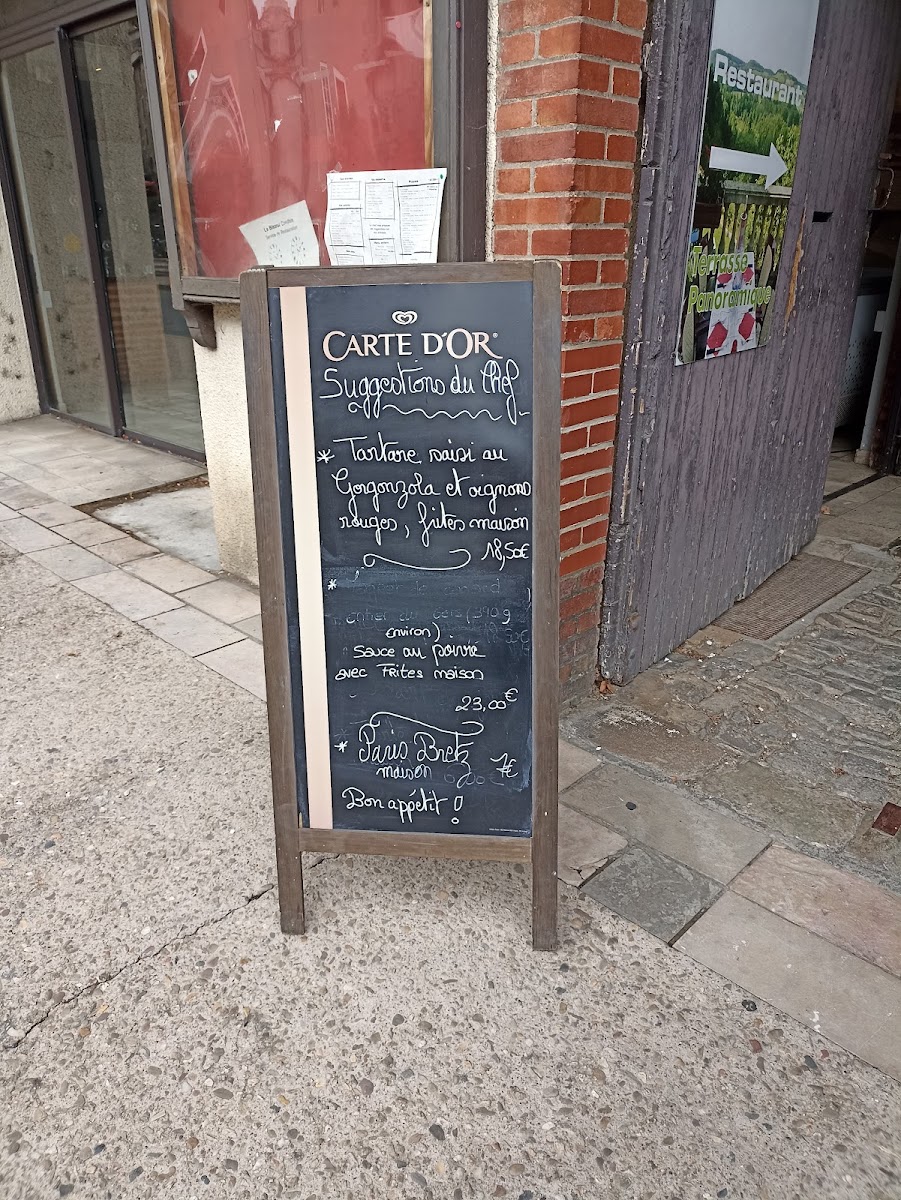 Restaurant
Terrasse
Panoramique
CARTE D'OR
Suggestions du Chef
* Tartare saisi au
Gorgonzola et oignons
rouges, frites maison
18,50€
*
(390g
environ)
Sauce au poivre
avec Frites maison
23,00€
* Paris Bretz
maison 7€
Bon appétit !